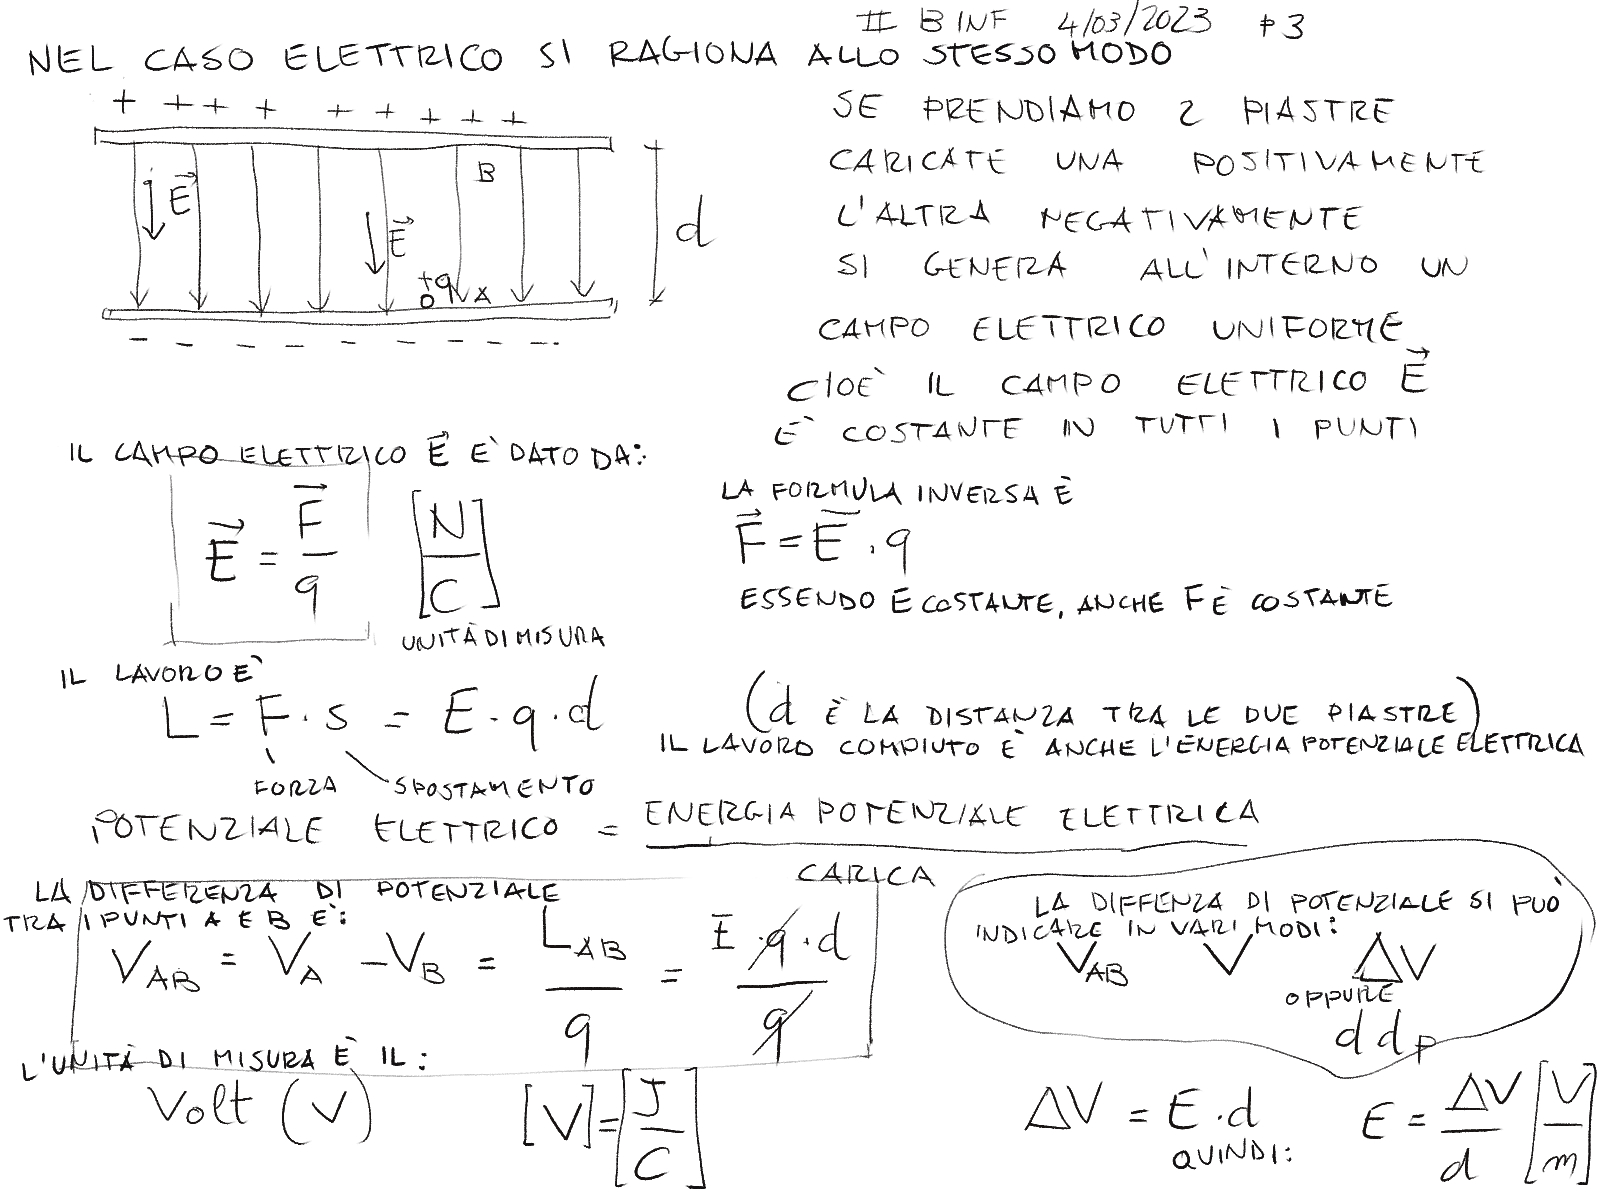 II B INF 4/03/2023 P3
NEL CASO ELETTRICO SI RAGIONA ALLO STESSO MODO
+ + + + + + + + +
SE PRENDIAMO 2 PIASTRE
CARICATE UNA POSITIVAMENTE
L'ALTRA NEGATIVAMENTE
SI GENERA ALL'INTERNO UN
CAMPO ELETTRICO UNIFORME
CIOE' IL CAMPO ELETTRICO E⃗
E' COSTANTE IN TUTTI I PUNTI
B
E⃗
E⃗
d
+q
A
- - - - - - - - -
IL CAMPO ELETTRICO E⃗ E' DATO DA:
E⃗ = F⃗ / q [N/C]
UNITÀ DI MISURA
LA FORMULA INVERSA È
F⃗ = E⃗ . q
ESSENDO E COSTANTE, ANCHE F È COSTANTE
IL LAVORO E'
L = F · s = E · q · d
FORZA SPOSTAMENTO
(d È LA DISTANZA TRA LE DUE PIASTRE)
IL LAVORO COMPIUTO E' ANCHE L'ENERGIA POTENZIALE ELETTRICA
POTENZIALE ELETTRICO = ENERGIA POTENZIALE ELETTRICA
CARICA
LA DIFFERENZA DI POTENZIALE
TRA I PUNTI A E B E':
V_AB = V_A - V_B = L_AB / q = E · q · d / q
LA DIFFENZA DI POTENZIALE SI PUÒ
INDICARE IN VARI MODI:
V_AB V ΔV
OPPURE
d d p
L'UNITÀ DI MISURA È IL:
Volt (V) [V] = [J/C]
ΔV = E · d
QUINDI:
E = ΔV / d [V/m]